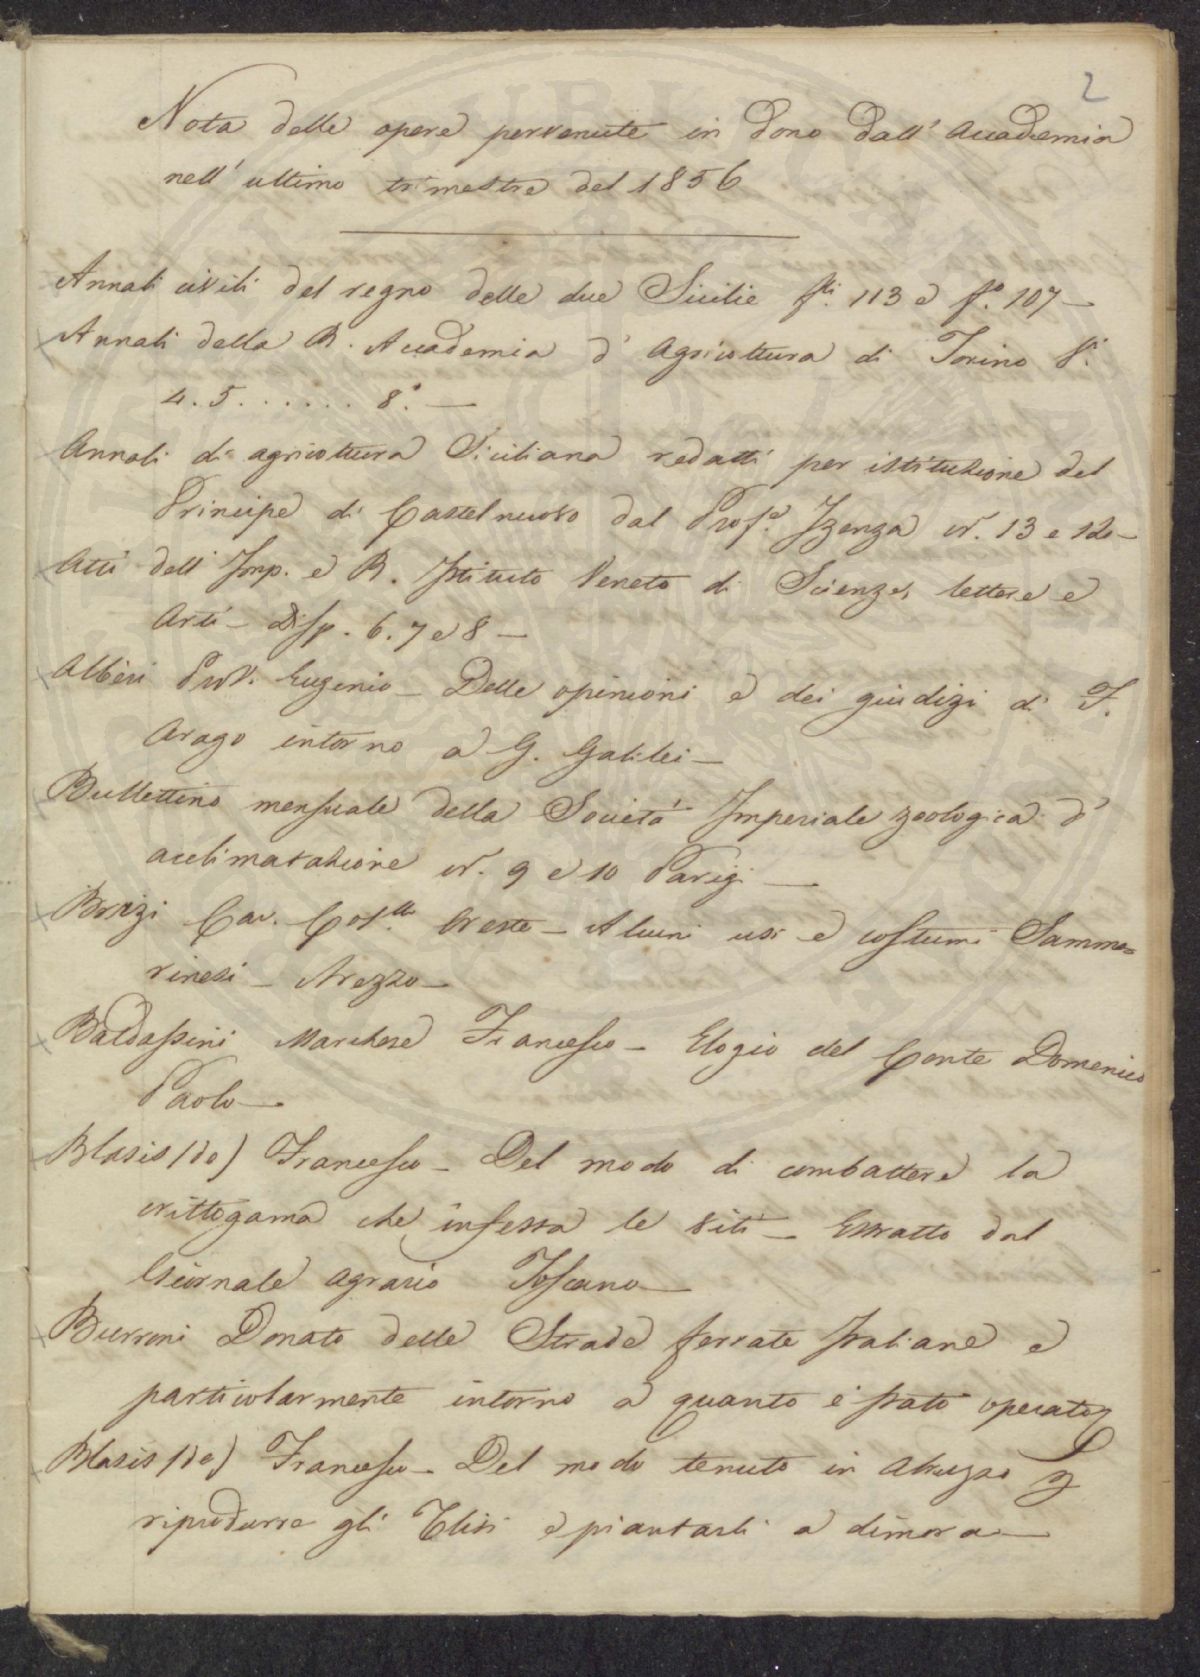 2
Nota delle opere pervenute in dono dall' Accademia
nell' ultimo trimestre del 1856
Annali civili del regno delle due Sicilie f.li 113 e f.o 107 —
Annali della R. Accademia d' Agricoltura di Torino V.
4. 5. . . . . . . 8.° —
Annali di agricoltura Siciliana redatti per istituzione del
Principe di Castelnuovo dal Prof.e Inzenga N. 13 e 12 —
Atti dell' Imp. e R. Istituto Veneto di Scienze, lettere e
Arti — Disp. 6. 7 e 8 —
Albèri Eugenio — Delle opinioni e dei giudizi di F.
Arago intorno a G. Galilei —
Bullettino mensuale della Società Imperiale zoologica d'
acclimatazione N. 9 e 10 Parigi —
Brizi Cav. Oreste — Alcuni usi e costumi Samma=
rinesi — Arezzo —
Baldassini Marchese Francesco — Elogio del Conte Domenico
Paolo —
Blasis (de) Francesco — Del modo di combattere la
crittogama che infesta le viti — Estratto dal
Giornale Agrario Toscano —
Burroni Donato delle Strade ferrate Italiane e
particolarmente intorno a quanto è stato operato
Blasis (de) Francesco — Del modo tenuto in Abruzzo
riprodurre gli Elisi e piantarli a dimora —